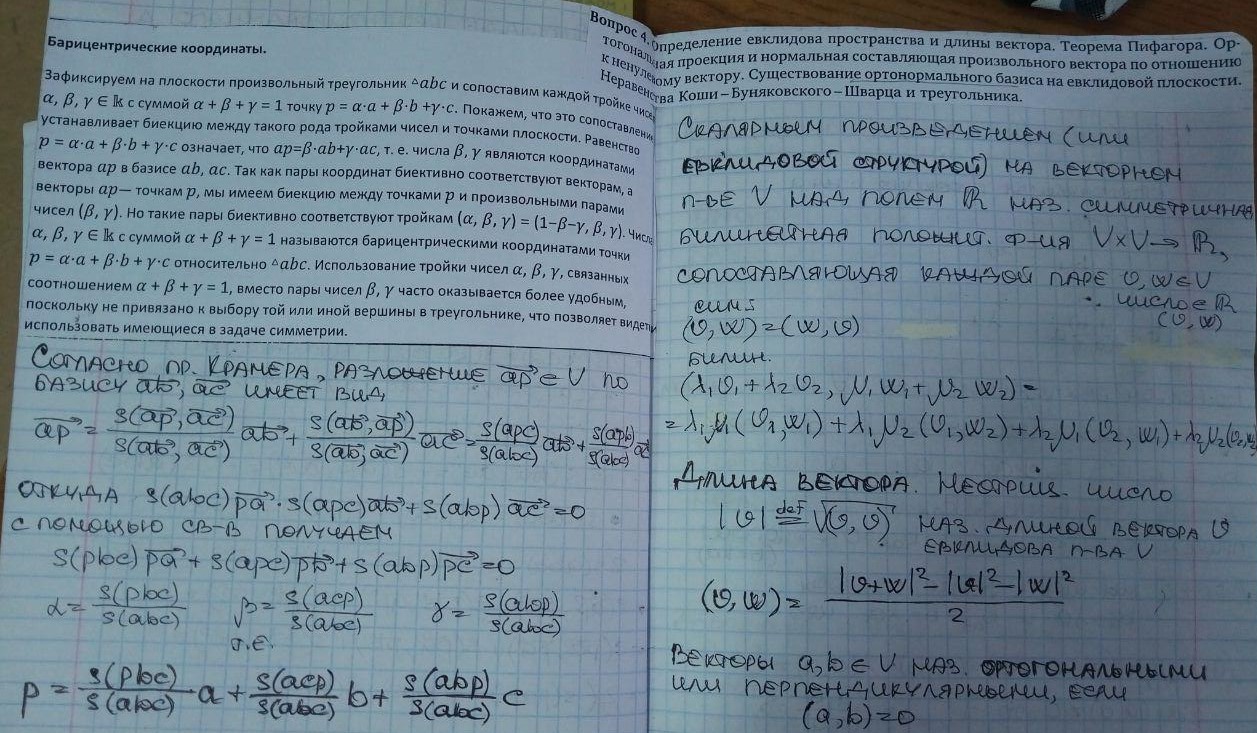 Барицентрические координаты.
Зафиксируем на плоскости произвольный треугольник △abc и сопоставим каждой тройке чисе
α, β, γ ∈ 𝕜 с суммой α + β + γ = 1 точку p = α·a + β·b +γ·c. Покажем, что это сопоставление
устанавливает биекцию между такого рода тройками чисел и точками плоскости. Равенство
p = α·a + β·b + γ·c означает, что ap=β·ab+γ·ac, т. е. числа β, γ являются координатами
вектора ap в базисе ab, ac. Так как пары координат биективно соответствуют векторам, а
векторы ap— точкам p, мы имеем биекцию между точками p и произвольными парами
чисел (β, γ). Но такие пары биективно соответствуют тройкам (α, β, γ) = (1−β−γ, β, γ). Числ
α, β, γ ∈ 𝕜 с суммой α + β + γ = 1 называются барицентрическими координатами точки
p = α·a + β·b + γ·c относительно △abc. Использование тройки чисел α, β, γ, связанных
соотношением α + β + γ = 1, вместо пары чисел β, γ часто оказывается более удобным,
поскольку не привязано к выбору той или иной вершины в треугольнике, что позволяет видеть
использовать имеющиеся в задаче симметрии.
Согласно пр. Крамера, разложение ap⃗ ∈ V по
базису ab⃗, ac⃗ имеет вид
ap⃗ = s(ap⃗, ac⃗)/s(ab⃗, ac⃗) ab⃗ + s(ab⃗, ap⃗)/s(ab⃗, ac⃗) ac⃗ = s(apc)/s(abc) ab⃗ + s(apb)/s(abc) ac⃗
откуда s(abc)pa⃗ · s(apc)ab⃗ + s(abp)ac⃗ = 0
с помощью св-в получаем
s(pbc)pa⃗ + s(apc)pb⃗ + s(abp)pc⃗ = 0
α = s(pbc)/s(abc) β = s(acp)/s(abc) γ = s(abp)/s(abc)
т.е.
p = s(pbc)/s(abc) a + s(acp)/s(abc) b + s(abp)/s(abc) c
Вопрос 4. Определение евклидова пространства и длины вектора. Теорема Пифагора. Ор-
тогональная проекция и нормальная составляющая произвольного вектора по отношению
к ненулевому вектору. Существование ортонормального базиса на евклидовой плоскости.
Неравенства Коши – Буняковского – Шварца и треугольника.
Скалярным произведением (или
евклидовой структурой) на векторном
п-ве V над полем ℝ наз. симметричная
билинейная положит. ф-ия V×V→ℝ,
сопоставляющая каждой паре v, w ∈ V
число ∈ ℝ
(v, w)
симм.
(v, w) = (w, v)
билин.
(λ₁v₁ + λ₂v₂, μ₁w₁ + μ₂w₂) =
= λ₁μ₁(v₁, w₁) + λ₁μ₂(v₁, w₂) + λ₂μ₁(v₂, w₁) + λ₂μ₂(v₂, w₂
Длина вектора. Неотриц. число
|v| def= √(v, v) наз. длиной вектора v
евклидова п-ва V
(v, w) = (|v+w|² − |v|² − |w|²)/2
Векторы a, b ∈ V наз. ортогональными
или перпендикулярными, если
(a, b) = 0